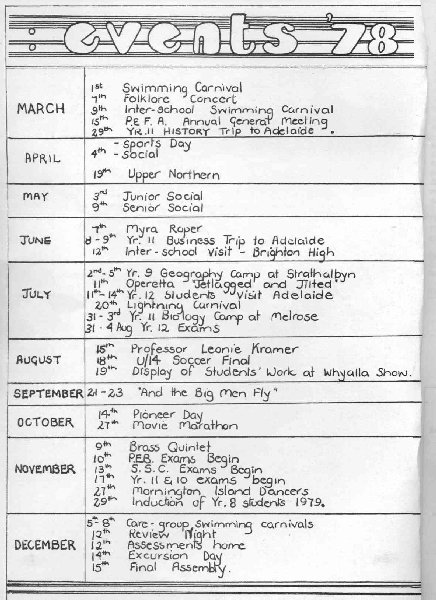 : events '78
MARCH
1st Swimming Carnival
7th Folklore Concert
9th Inter-school Swimming Carnival
15th P.E.F.A. Annual General Meeting
29th YR.11 HISTORY Trip to Adelaide.
APRIL
4th - Sports Day
- Social
19th Upper Northern
MAY
3rd Junior Social
9th Senior Social
JUNE
7th Myra Roper
8-9th Yr. 11 Business Trip to Adelaide
12th Inter-school Visit - Brighton High
JULY
2nd-5th Yr. 9 Geography Camp at Strathalbyn
11th Operetta "Jetlagged and Jilted"
11th-14th Yr. 12 Students Visit Adelaide
20th Lightning Carnival
31-3rd Yr. 11 Biology Camp at Melrose
31-4 Aug Yr. 12 Exams
AUGUST
15th Professor Leonie Kramer
18th U/14 Soccer Final
19th Display of Students' Work at Whyalla Show.
SEPTEMBER 21-23 "And the Big Men Fly"
OCTOBER
14th Pioneer Day
27th Movie Marathon
NOVEMBER
9th Brass Quintet
10th P.E.B. Exams Begin
13th S.S.C. Exams Begin
17th Yr. 11 & 10 exams begin
27th Mornington Island Dancers
29th Induction of Yr. 8 students 1979.
DECEMBER
5th-8th Care-group swimming carnivals
12th Review Night
12th Assessments home
14th Excursion Day
15th Final Assembly.